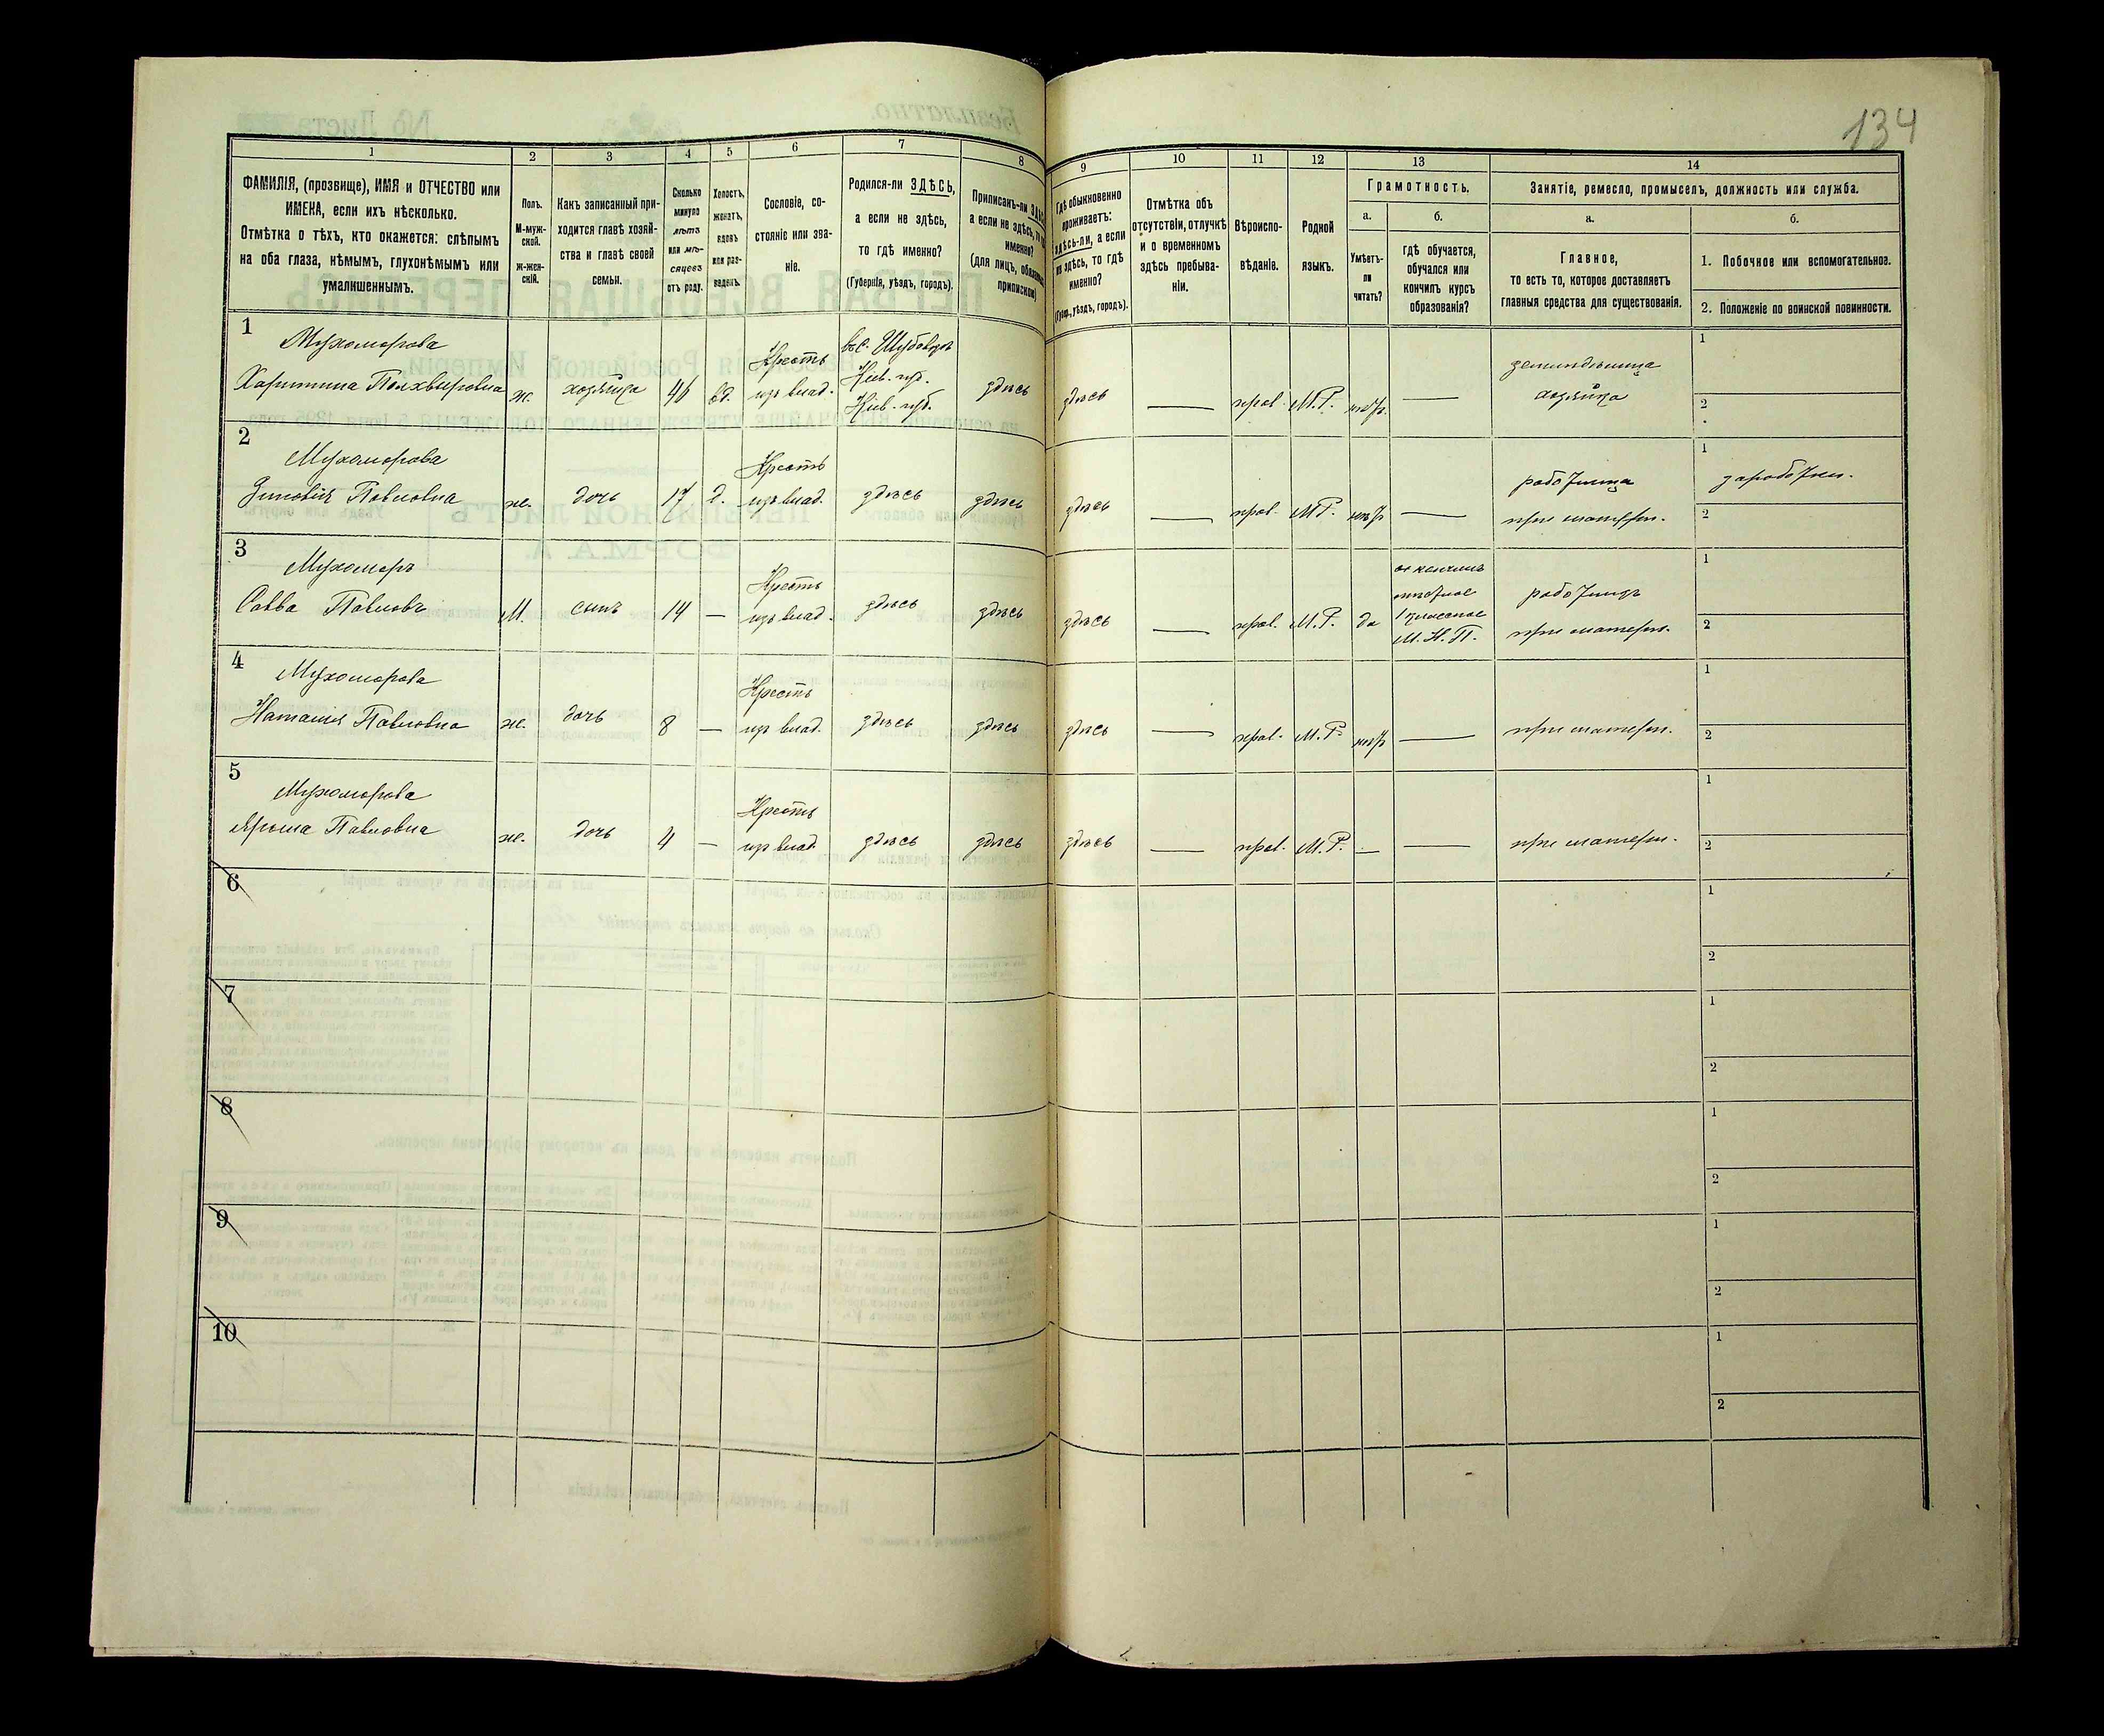 134
1
2
3
4
5
6
7
8
9
10
11
12
13
14
ФАМИЛІЯ, (прозвище), ИМЯ и ОТЧЕСТВО или
ИМЕНА, если ихъ нѣсколько.
Отмѣтка о тѣхъ, кто окажется: слѣпымъ
на оба глаза, нѣмымъ, глухонѣмымъ или
умалишеннымъ.
Полъ.
М-муж-
ской.
ж-жен-
скій.
Какъ записанный при-
ходится главѣ хозяй-
ства и главѣ своей
семьи.
Сколько
минуло
лѣтъ
или мѣ-
сяцевъ
отъ роду.
Холостъ,
женатъ,
вдовъ
или раз-
веденъ.
Сословіе, со-
стояніе или зва-
ніе.
Родился-ли ЗДѢСЬ,
а если не здѣсь,
то гдѣ именно?
(Губернія, уѣздъ, городъ).
Приписанъ-ли
а если не здѣсь,
именно?
(для лицъ,
припиской)
Гдѣ обыкновенно
проживаетъ:
здѣсь-ли, а если
не здѣсь, то гдѣ
именно?
(Губер., уѣздъ, городъ).
Отмѣтка объ
отсутствіи, отлучкѣ
и о временномъ
здѣсь пребыва-
ніи.
Вѣроиспо-
вѣданіе.
Родной
языкъ.
Грамотность.
а.
Умѣетъ-
ли
читать?
б.
гдѣ обучается,
обучался или
кончилъ курсъ
образованія?
Занятіе, ремесло, промыселъ, должность или служба.
а.
Главное,
то есть то, которое доставляетъ
главныя средства для существованія.
б.
1. Побочное или вспомогательное.
2. Положеніе по воинской повинности.
1
Мухоморова
Харитина Полхвыровна
ж.
хозяйка
46
вд.
Крестъ
изъ влад.
въ с.
Кіев. губ.
здѣсь
здѣсь
—
прав.
М.Р.
—
хозяйка
1
2
2
Мухоморова
Зиновія Павловна
ж.
дочь
17
д.
Крестъ
изъ влад.
здѣсь
здѣсь
здѣсь
—
прав.
М.Р.
—
работница
при матери.
1
2
3
Мухоморъ
Савва Павловъ
М.
сынъ
14
—
Крестъ
изъ влад.
здѣсь
здѣсь
здѣсь
—
прав.
М.Р.
да
1 классное
М. Н. П.
работникъ
при матери.
1
2
4
Мухоморова
Наталія Павловна
ж.
дочь
8
—
Крестъ
изъ влад.
здѣсь
здѣсь
здѣсь
—
прав.
М.Р.
—
при матери.
1
2
5
Мухоморова
Ярына Павловна
ж.
дочь
4
—
Крестъ
изъ влад.
здѣсь
здѣсь
здѣсь
—
прав.
М.Р.
—
—
при матери.
1
2
6
1
2
7
1
2
8
1
2
9
1
2
10
1
2